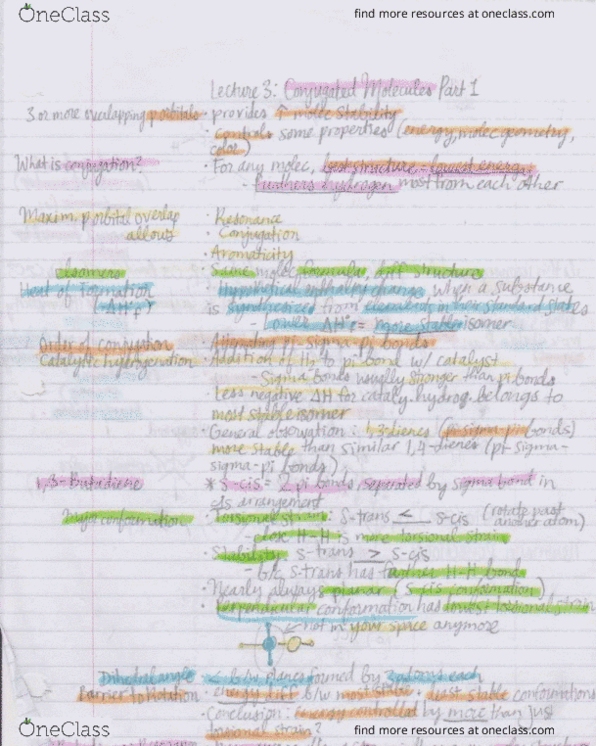 OneClass
find more resources at oneclass.com
Lecture 3: Conjugated Molecules Part 1
3 or more overlapping p orbitals · provides ↑ molec stability
· controls some properties (energy, molec geometry,
color)
What is conjugation? · For any molec, best structure = lowest energy
- furthers hydrogen most from each other
Maxim. p orbital overlap · Resonance
allows · Conjugation
· Aromaticity
Isomers · Same molec formula, diff structure
Heat of Formation · Hypothetical enthalpy change when a substance
(ΔH°f) is synthesized from elements in their standard states
- Lower ΔH°f = more stable isomer
Order of conjugation · Alternating pi-sigma-pi bonds
Catalytic hydrogenation · Addition of H₂ to pi bond w/ catalyst
- Sigma bonds usually stronger than pi bonds
· Less negative ΔH for cataly. hydrog. belongs to
most stable isomer
· General observation: 1,3-dienes (pi-sigma-pi bonds)
more stable than similar 1,4-dienes (pi-sigma-
sigma-pi bonds)
1,3-Butadiene * s-cis = 2 pi bonds separated by sigma bond in
cis arrangement
Major conformation · Torsional strain: s-trans < s-cis (rotate past
another atom)
- close H-H is more torsional strain
· Stability: s-trans > s-cis
- b/c s-trans has farther H-H bonds
· Nearly always planar (s-cis conformation)
· Perpendicular conformation has lowest torsional strain
← not in your space anymore
Dihedral angle < b/w planes formed by 3 atoms each
Barrier to Rotation · energy diff b/w most stable · least stable conformations
· Conclusion: energy controlled by more than just
torsional strain?
OneClass
find more resources at oneclass.com